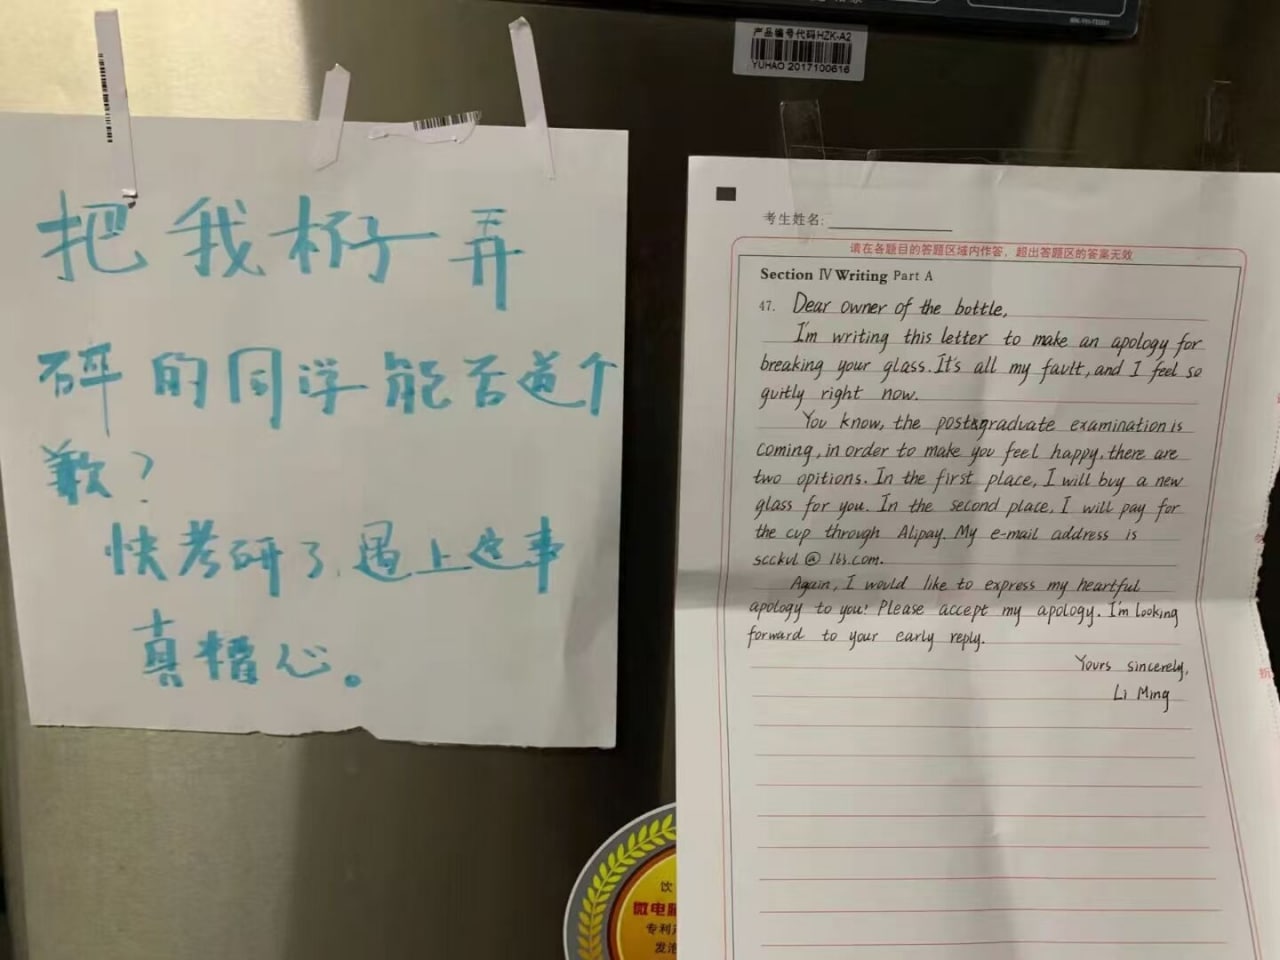 产品编号代码HZK-A2
YUHAO 2017100616
把我杯子弄
碎的同学能否道个
歉？
快考研了，遇上这事
真糟心。
考生姓名:
请在各题目的答题区域内作答，超出答题区的答案无效
Section Ⅳ Writing Part A
47. Dear owner of the bottle,
I'm writing this letter to make an apology for
breaking your glass. It's all my fault, and I feel so
guitly right now.
You know, the postgraduate examination is
coming, in order to make you feel happy, there are
two opitions. In the first place, I will buy a new
glass for you. In the second place, I will pay for
the cup through Alipay. My e-mail address is
scckvl@163.com.
Again, I would like to express my heartful
apology to you! Please accept my apology. I'm looking
forward to your early reply.
Yours sincerely,
Li Ming
饮
微电脑
专利
发泡